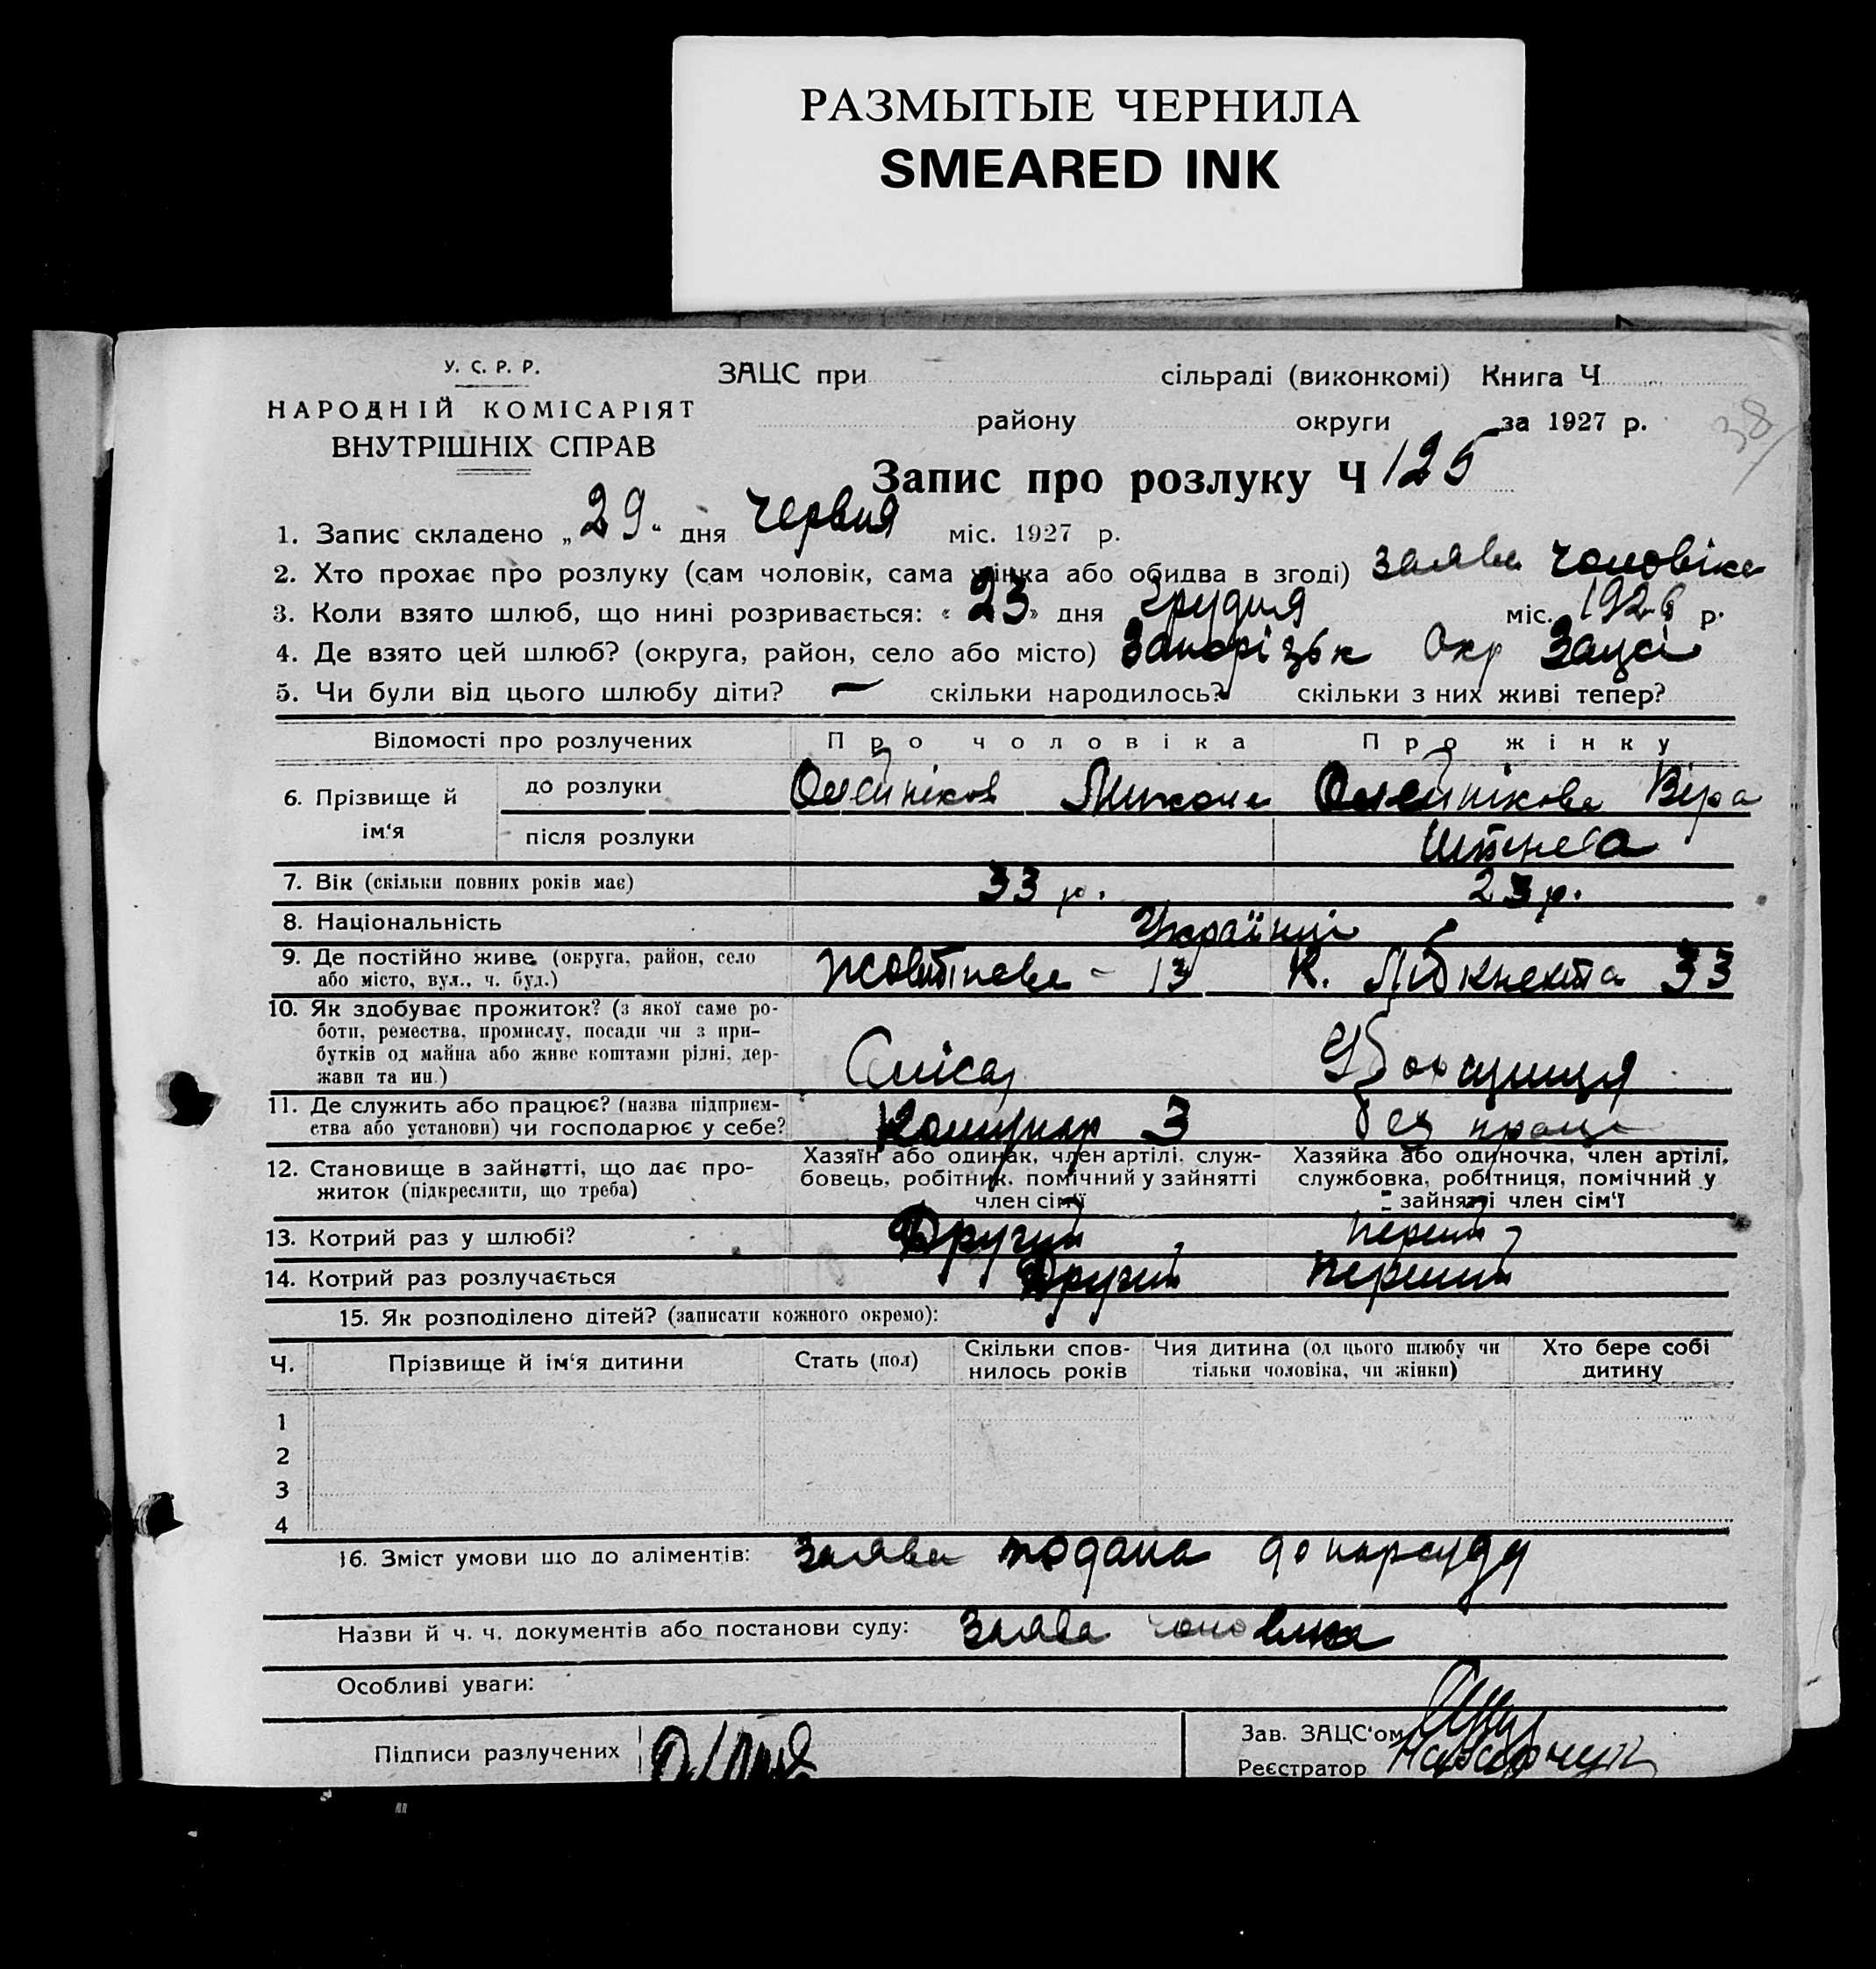 РАЗМЫТЫЕ ЧЕРНИЛА
SMEARED INK
38
У. С. Р. Р.
НАРОДНІЙ КОМІСАРІЯТ
ВНУТРІШНІХ СПРАВ
ЗАЦС при сільраді (виконкомі) Книга Ч
району округи за 1927 р.
Запис про розлуку Ч 125
1. Запис складено „29“ дня Червня міс. 1927 р.
2. Хто прохає про розлуку (сам чоловік, сама жінка або обидва в згоді) заява чоловіка
3. Коли взято шлюб, що нині розривається: «23» дня Грудня міс. 1926 р.
4. Де взято цей шлюб? (округа, район, село або місто) Запорізьк Окр Зацсі
5. Чи були від цього шлюбу діти? — скільки народилось? скільки з них живі тепер?
Відомості про розлучених Про чоловіка Про жінку
6. Прізвище й ім‘я до розлуки Олейніков Микола Олейнікова Віра
після розлуки
7. Вік (скільки повних років має) 33 р. 23 р.
8. Національність Українці
9. Де постійно живе (округа, район, село або місто, вул., ч. буд.) Жовтнева - 13 К. Лібкнехта 33
10. Як здобуває прожиток? (з якої саме роботи, ремества, промислу, посади чи з прибутків од майна або живе коштами рідні, держави та ин.) Слісар Уборщиця
11. Де служить або працює? (назва підприємства або установи) чи господарює у себе? Комунар З без праці
12. Становище в зайнятті, що дає прожиток (підкреслити, що треба)
Хазяїн або одинак, член артілі, службовець, робітник, помічний у зайнятті член сім‘ї
Хазяйка або одиночка, член артілі, службовка, робітниця, помічний у зайнятті член сім‘ї
13. Котрий раз у шлюбі? Другий перший
14. Котрий раз розлучається Другий перший
15. Як розподілено дітей? (записати кожного окремо):
Ч. Прізвище й ім‘я дитини Стать (пол) Скільки сповнилось років Чия дитина (од цього шлюбу чи тільки чоловіка, чи жінки) Хто бере собі дитину
1
2
3
4
16. Зміст умови що до аліментів: Заява подана до нарсуду
Назви й ч. ч. документів або постанови суду: Заява чоловіка
Особливі уваги:
Підписи разлучених
Зав. ЗАЦС‘ом
Реєстратор